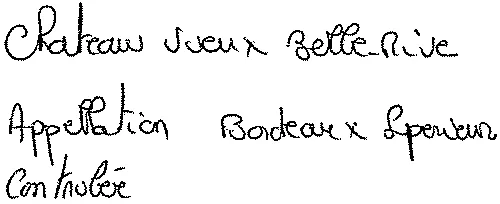 Chateau Vieux Belle-Rive
Appellation Bordeaux Superieur
Controlée